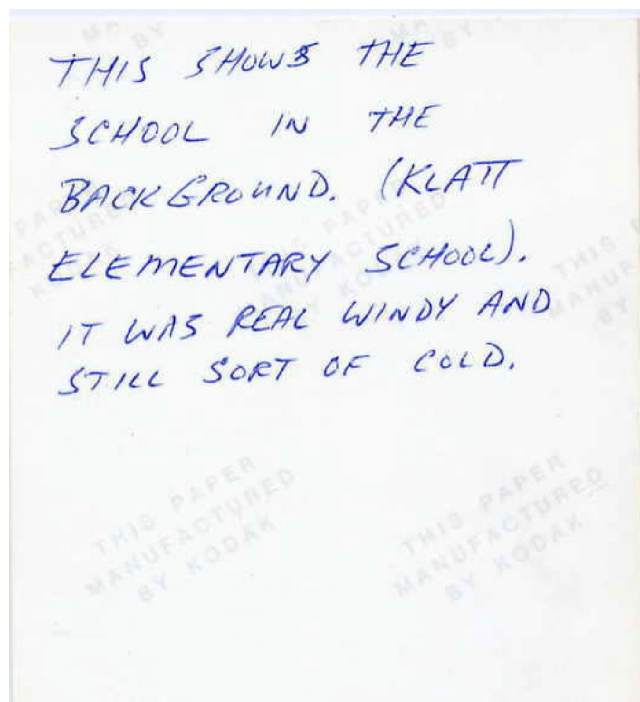 THIS SHOWS THE
SCHOOL IN THE
BACKGROUND. (KLATT
ELEMENTARY SCHOOL).
IT WAS REAL WINDY AND
STILL SORT OF COLD.
THIS PAPER
MANUFACTURED
BY KODAK
THIS PAPER
MANUFACTURED
BY KODAK